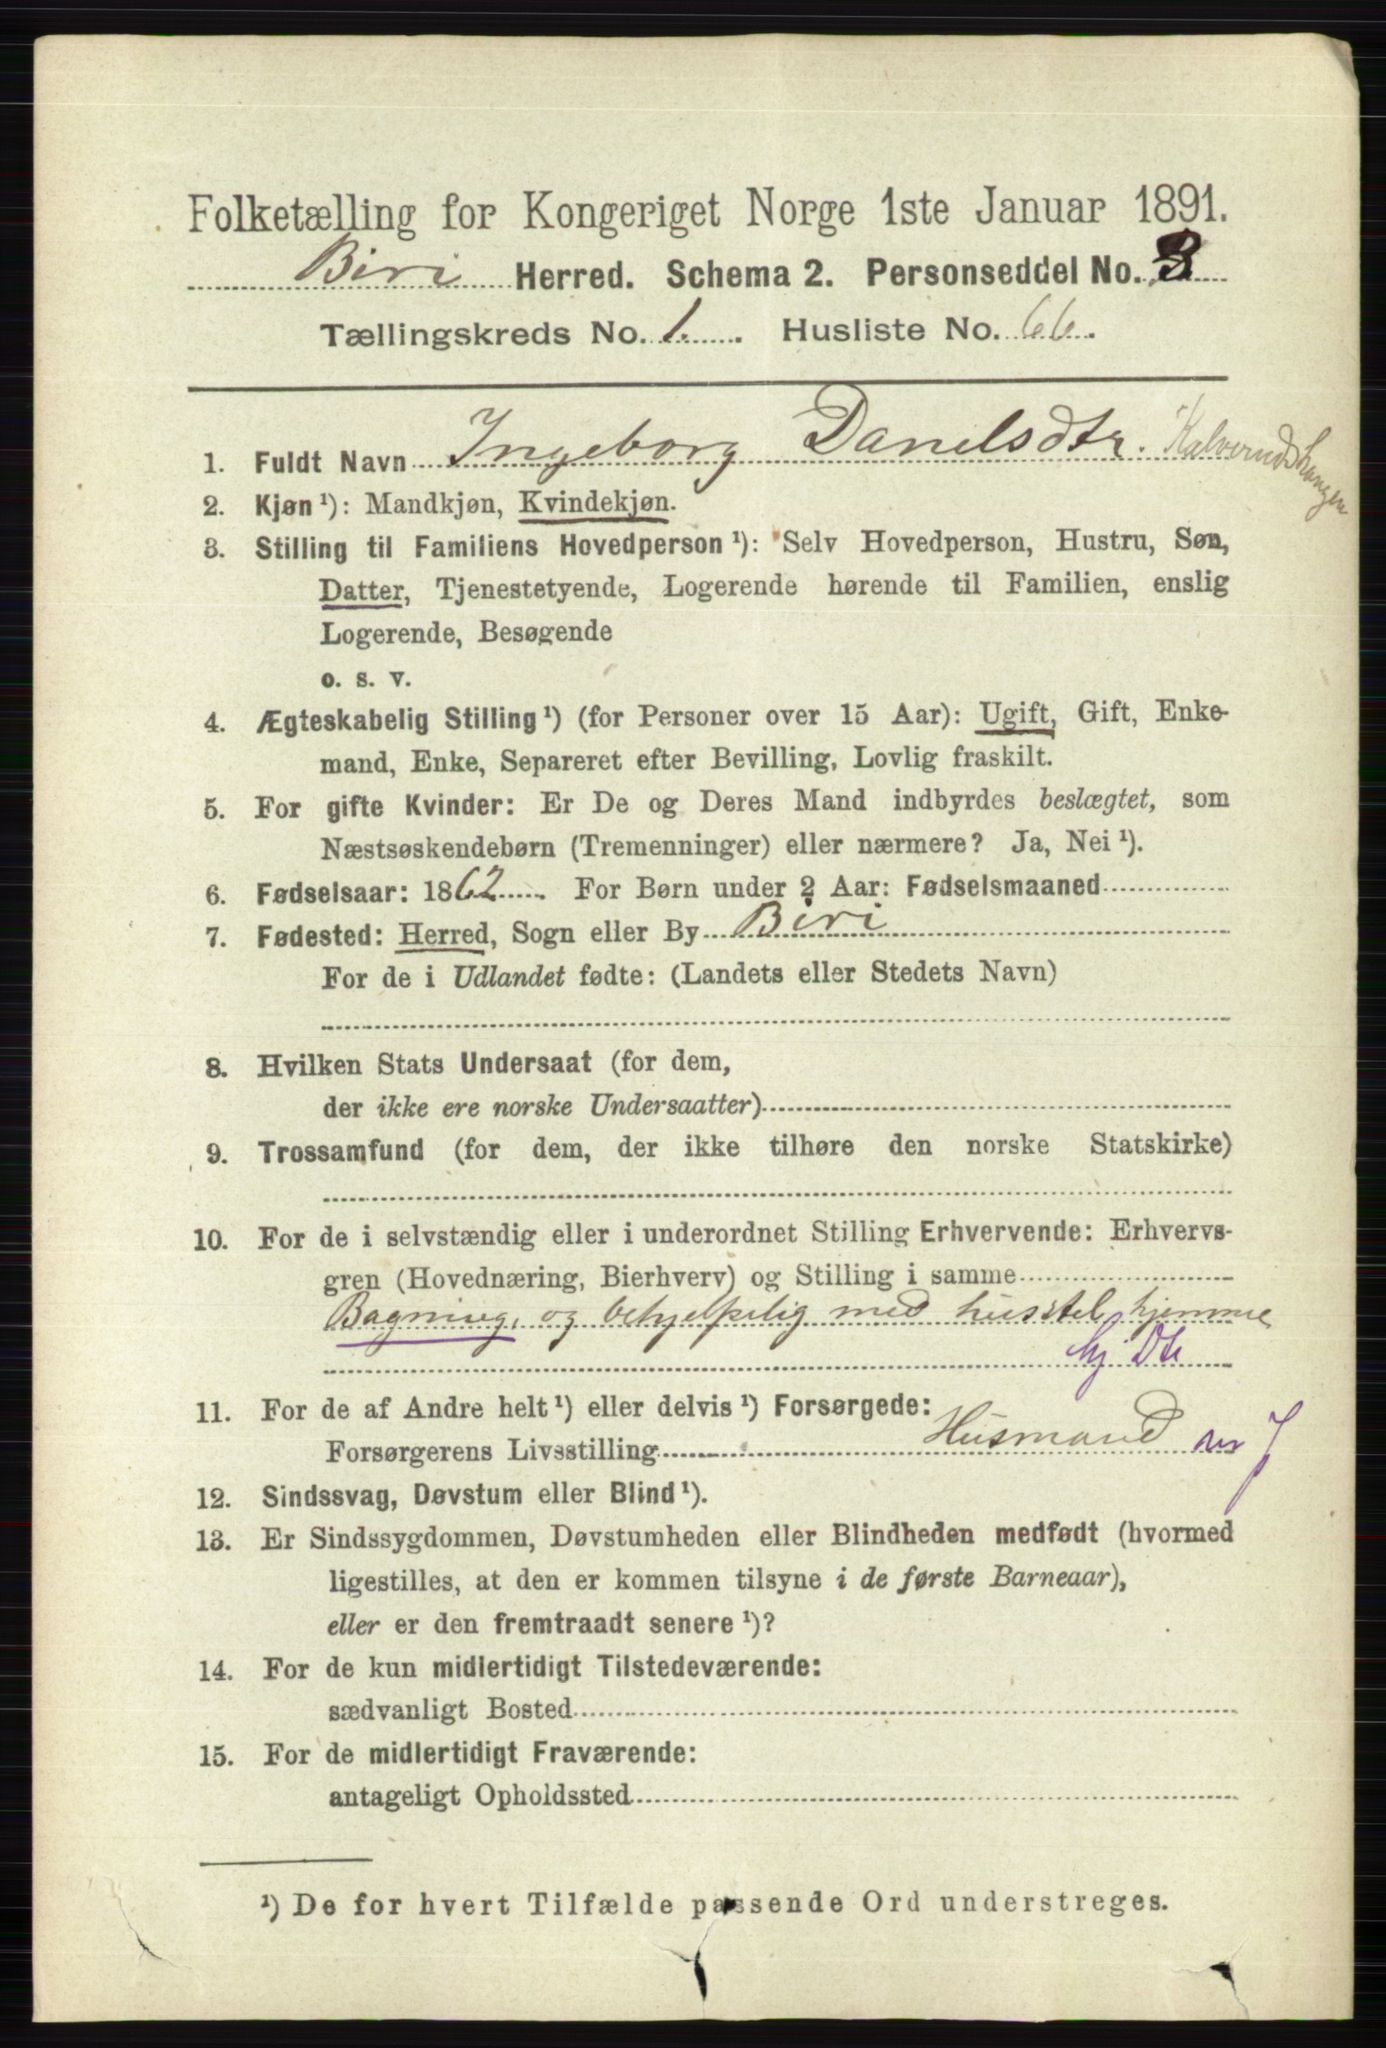 Folketælling for Kongeriget Norge 1ste Januar 1891.
Biri Herred. Schema 2. Personseddel No. 3
Tællingskreds No. 1. Husliste No. 66.
1. Fuldt Navn Ingeborg Danielsdtr.
2. Kjøn ¹): Mandkjøn, Kvindekjøn.
3. Stilling til Familiens Hovedperson ¹): Selv Hovedperson, Hustru, Søn,
Datter, Tjenestetyende, Logerende hørende til Familien, enslig
Logerende, Besøgende
o. s. v.
4. Ægteskabelig Stilling ¹) (for Personer over 15 Aar): Ugift, Gift, Enke-
mand, Enke, Separeret efter Bevilling, Lovlig fraskilt.
5. For gifte Kvinder: Er De og Deres Mand indbyrdes beslægtet, som
Næstsøskendebørn (Tremenninger) eller nærmere? Ja, Nei ¹).
6. Fødselsaar: 1862. For Børn under 2 Aar: Fødselsmaaned
7. Fødested: Herred, Sogn eller By Biri
For de i Udlandet fødte: (Landets eller Stedets Navn)
8. Hvilken Stats Undersaat (for dem,
der ikke ere norske Undersaatter)
9. Trossamfund (for dem, der ikke tilhøre den norske Statskirke)
10. For de i selvstændig eller i underordnet Stilling Erhvervende: Erhvervs-
gren (Hovednæring, Bierhverv) og Stilling i samme
Bagning, og behjelpelig med husstel hjemme
hj Dtr
11. For de af Andre helt ¹) eller delvis ¹) Forsørgede:
Forsørgerens Livsstilling Husmand
12. Sindssvag, Døvstum eller Blind ¹).
13. Er Sindssygdommen, Døvstumheden eller Blindheden medfødt (hvormed
ligestilles, at den er kommen tilsyne i de første Barneaar),
eller er den fremtraadt senere ¹)?
14. For de kun midlertidigt Tilstedeværende:
sædvanligt Bosted
15. For de midlertidigt Fraværende:
antageligt Opholdssted
¹) De for hvert Tilfælde passende Ord understreges.